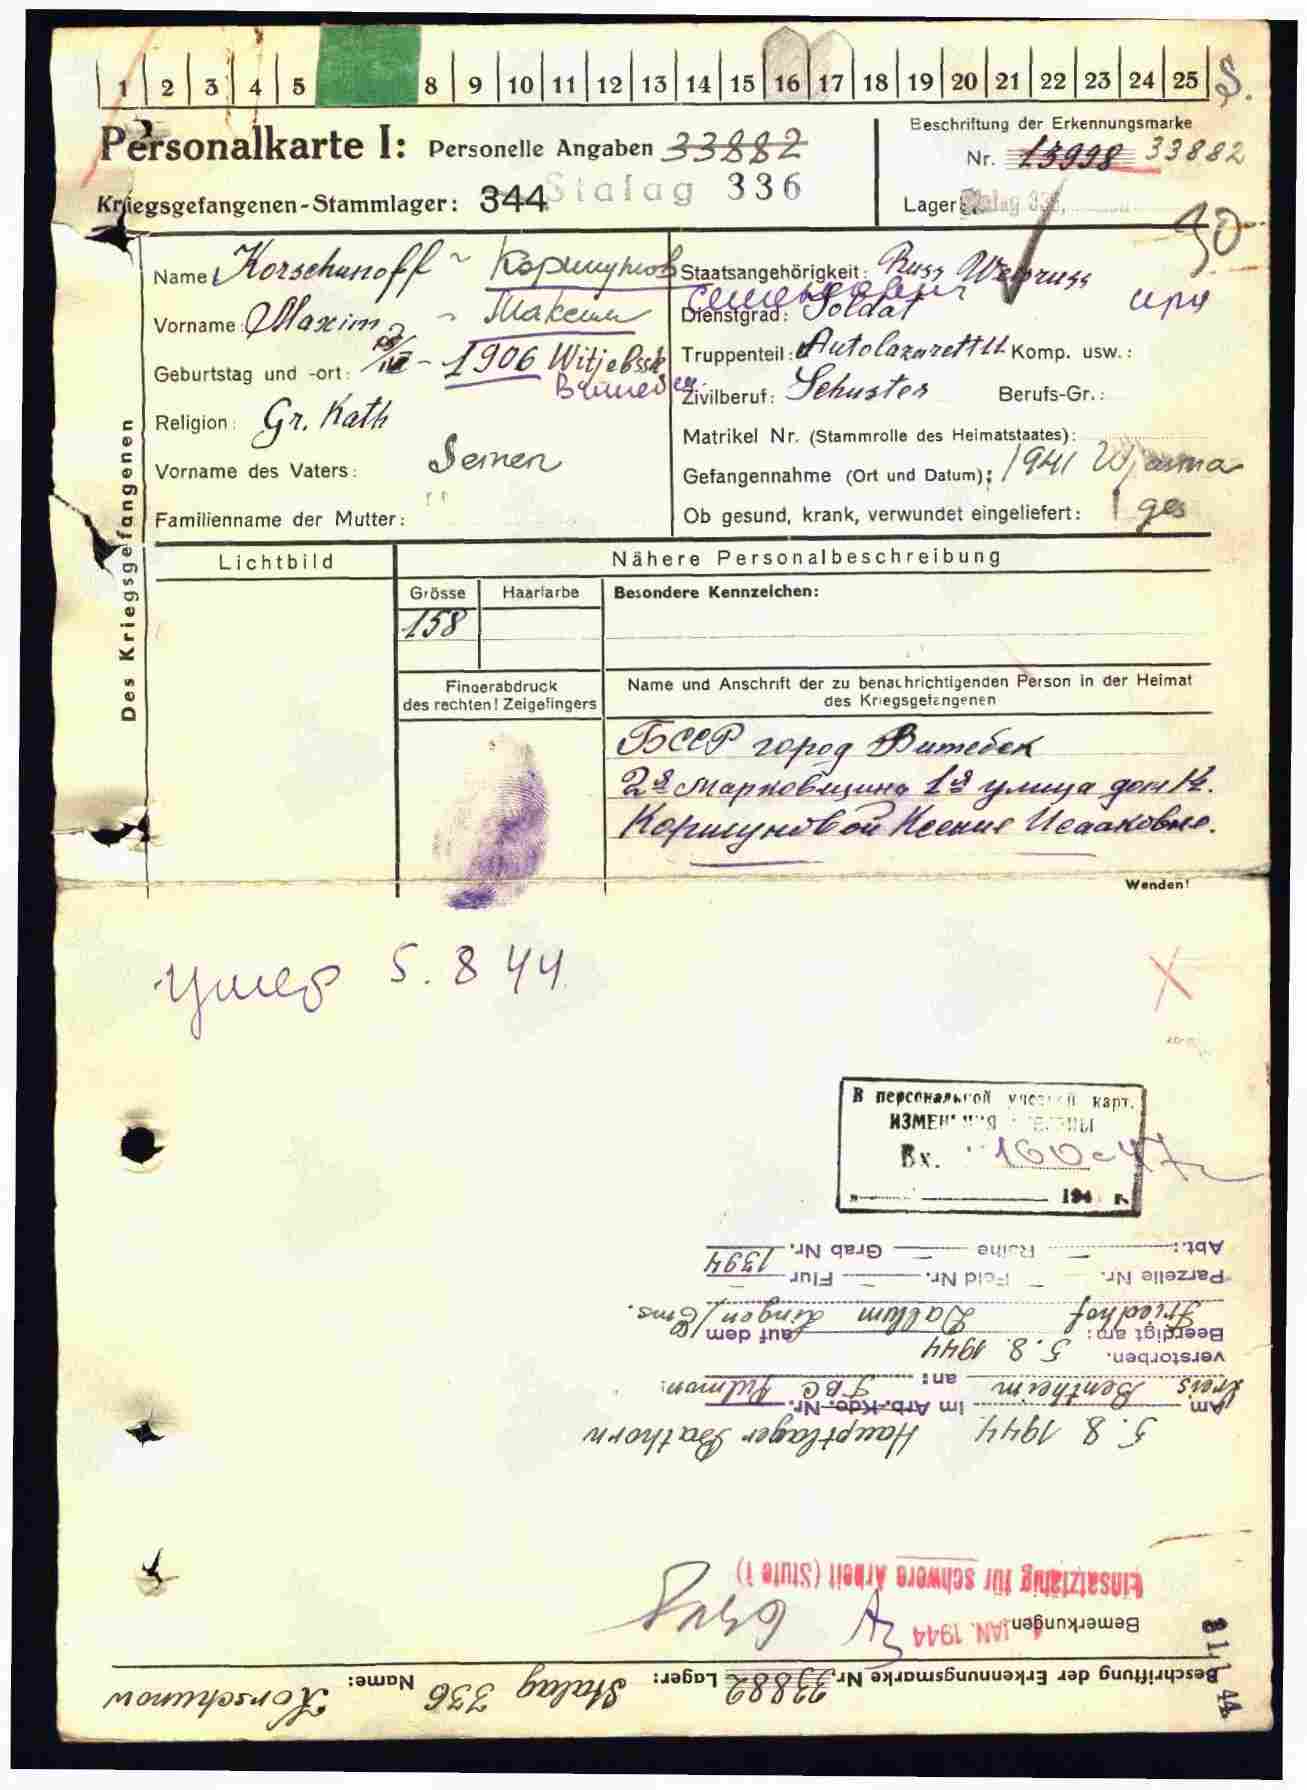 1 2 3 4 5 8 9 10 11 12 13 14 15 16 17 18 19 20 21 22 23 24 25 S.
Personalkarte I: Personelle Angaben 33882
Beschriftung der Erkennungsmarke
Nr. 13998 33882
Kriegsgefangenen-Stammlager: 344 Stalag 336
Lager: Stalag 336
Des Kriegsgefangenen
Name: Korschunoff ~ Коршунов
Vorname: Maxim ~ Максим
Geburtstag und -ort: 1906 Witjebssk
Religion: Gr. Kath
Vorname des Vaters: Semen
Familienname der Mutter:
Staatsangehörigkeit: Russ Weisruss
Dienstgrad: Soldat
Truppenteil: Autolazarett Komp. usw.:
Zivilberuf: Schuster Berufs-Gr.:
Matrikel Nr. (Stammrolle des Heimatstaates):
Gefangennahme (Ort und Datum): 1941 Wjasma
Ob gesund, krank, verwundet eingeliefert: ges
Lichtbild
Nähere Personalbeschreibung
Grösse Haarfarbe Besondere Kennzeichen:
158
Fingerabdruck
des rechten! Zeigefingers
Name und Anschrift der zu benachrichtigenden Person in der Heimat
des Kriegsgefangenen
БССР город Витебск
2я Марковщина 1я улица дом 14.
Коршуновой Ксение Исааковне.
Wenden!
умер 5. 8 44
В персональной учетной карт.
ИЗМЕНЕНИЯ ВНЕСЕНЫ
Вх. 160-47
194 г.
Beschriftung der Erkennungsmarke Nr. 33882 Lager: Stalag 336 Name: Korschunow
Bemerkungen
JAN. 1944
Einsatzfähig für schwere Arbeit (Stufe I)
5. 8. 1944 Hauptlager Bathorn
Am Kreis Bentheim im Arb.-Kdo. Nr.
an: TBC Pulmon.
verstorben. 5. 8. 1944
Beerdigt am: auf dem
Friedhof Dalum Lingen/Ems.
Parzelle Nr. Feld Nr. Flur
Abt.: Reihe Grab Nr. 1394